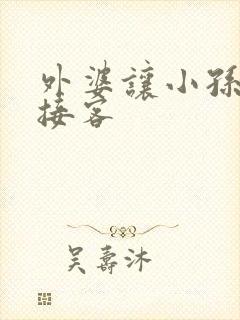 外婆讓小孫
接客
吴壽沐